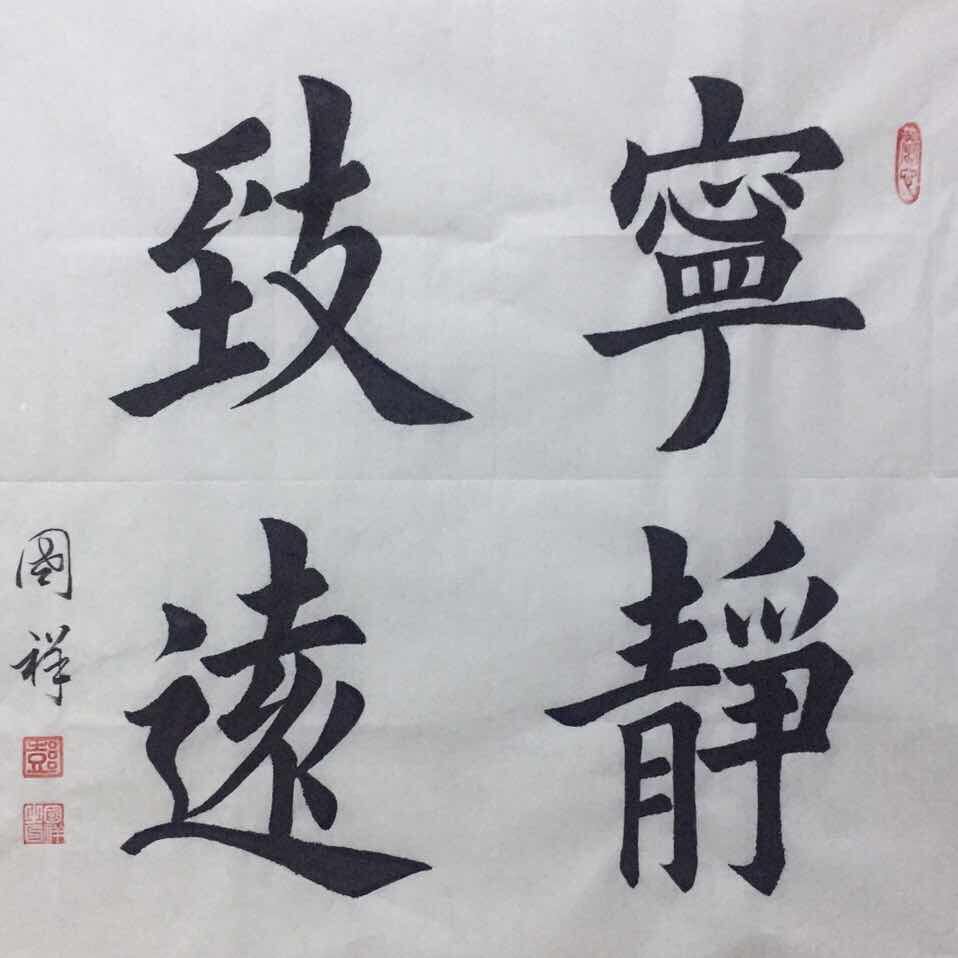 寧靜
致遠
國祥